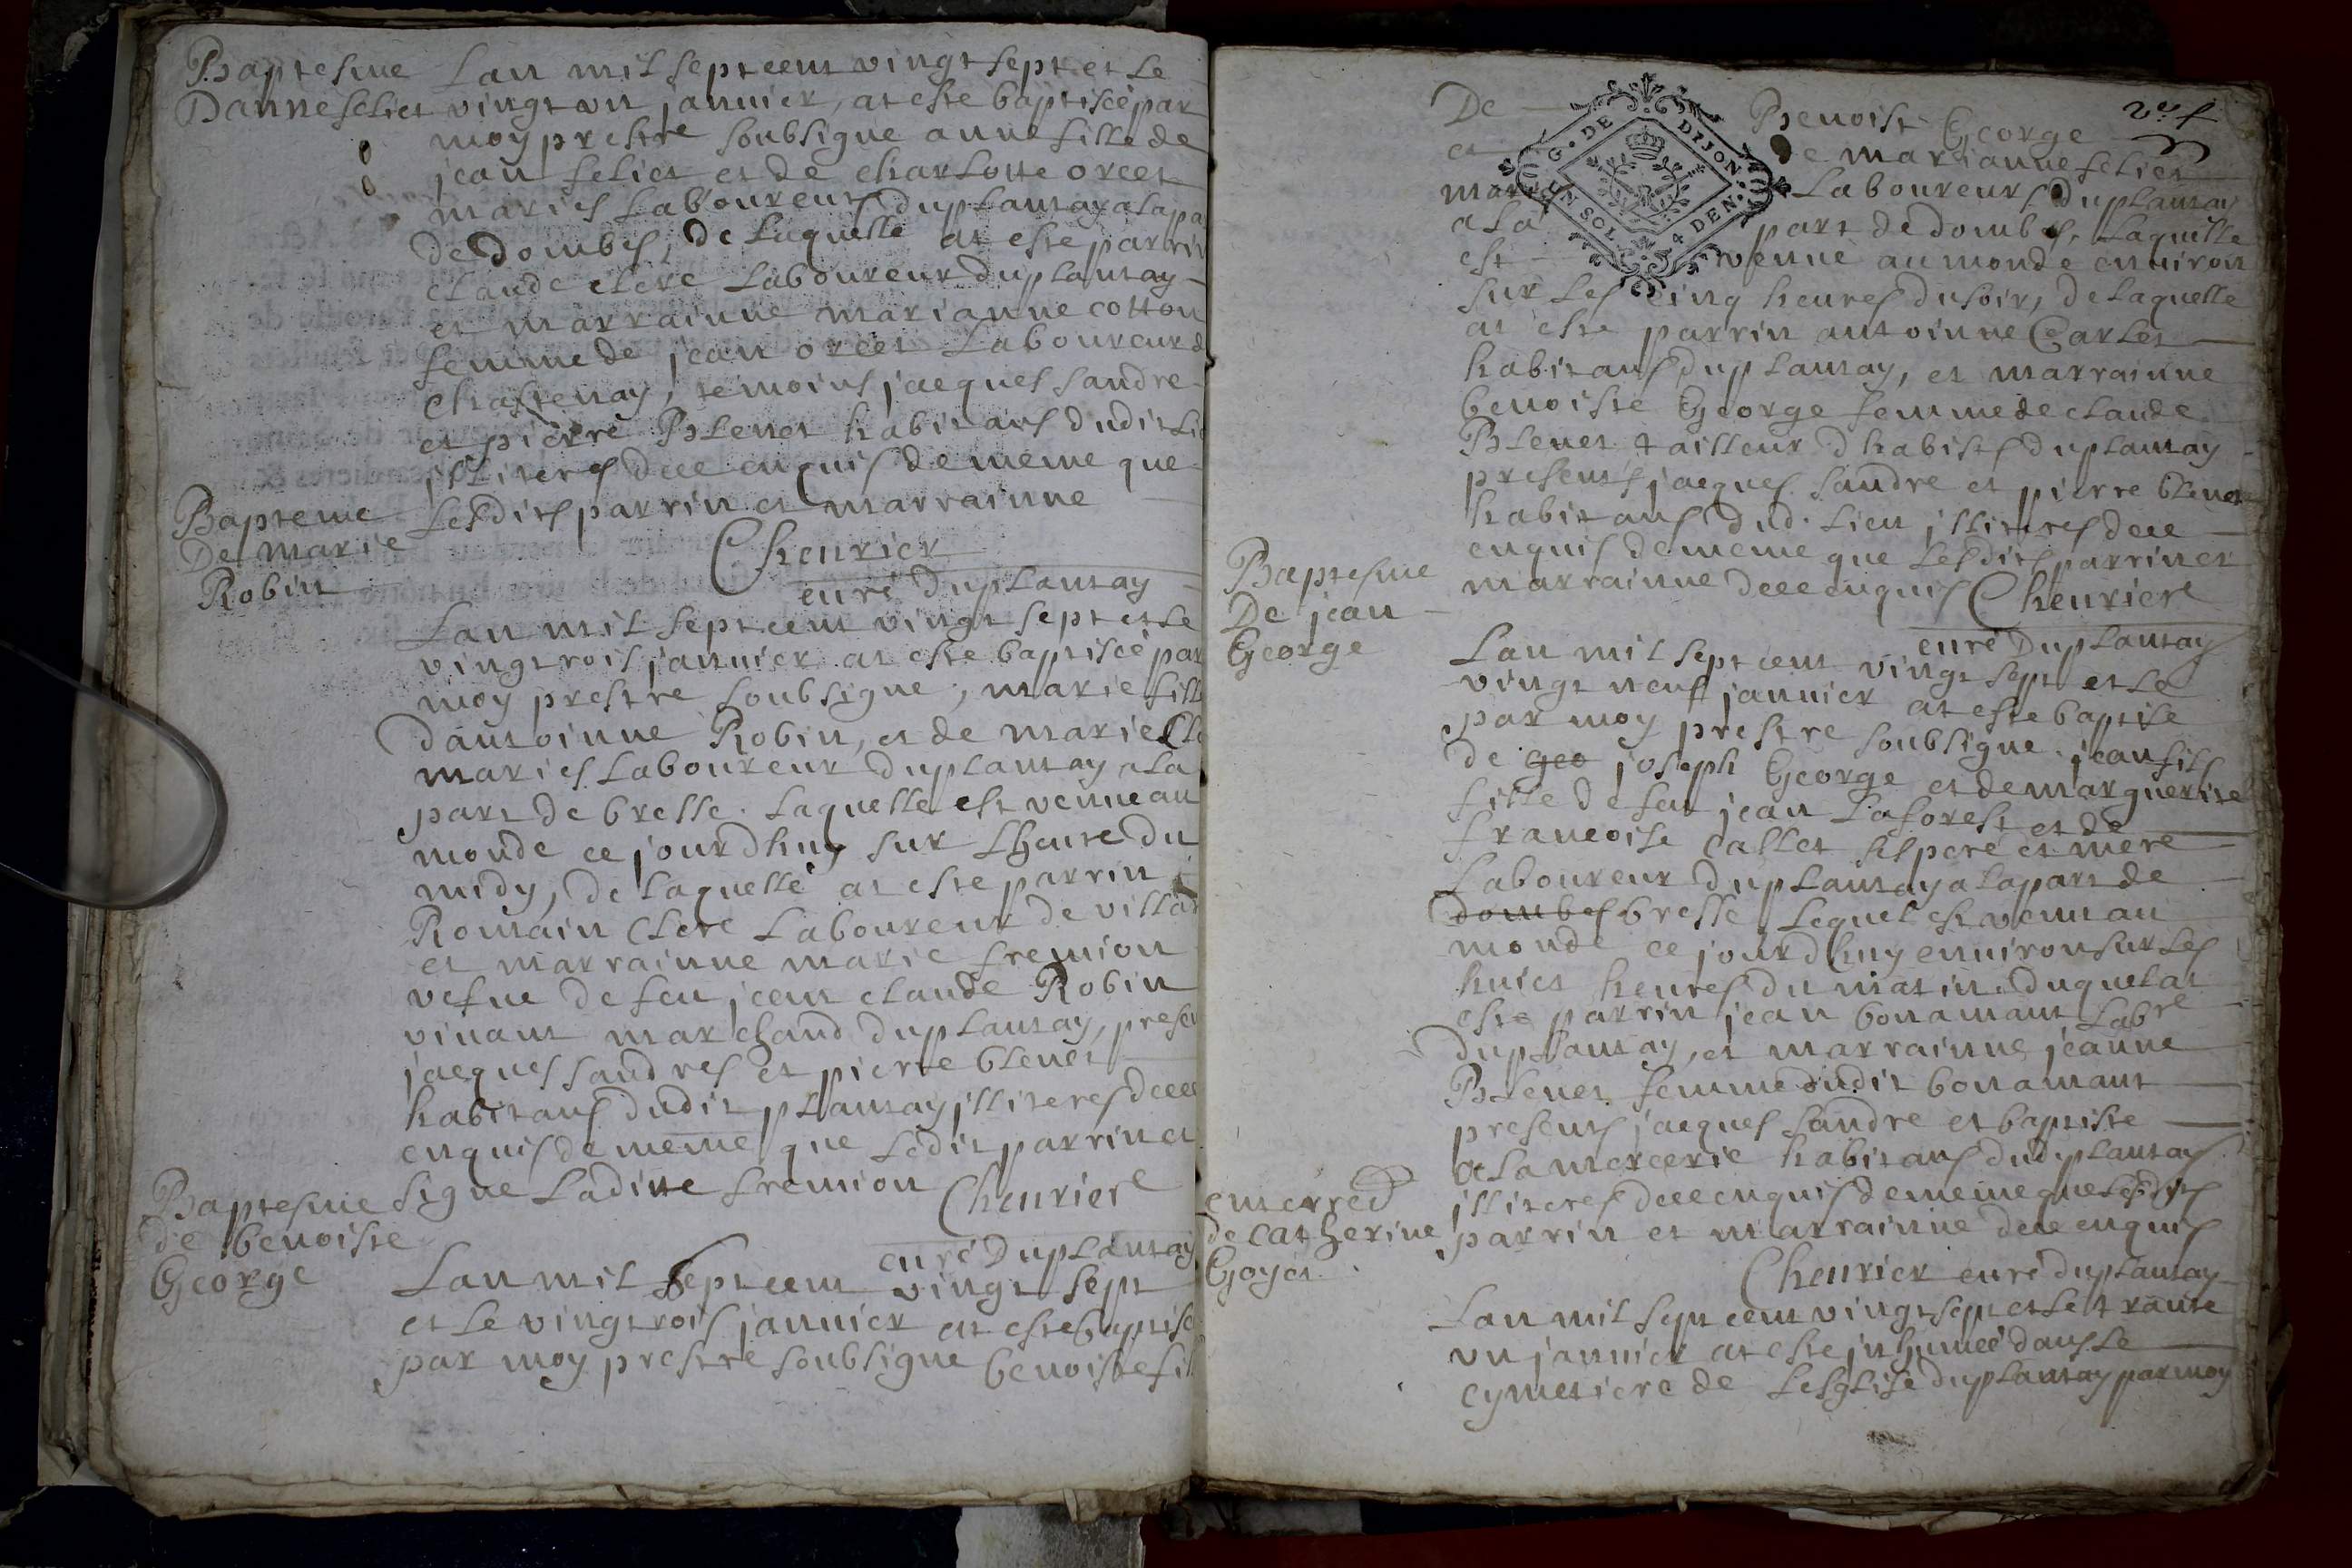 Baptesme
Danne feliet
Lan mil sept cent vingt sept et le
vingt un janvier, at este baptiscé par
moy prestre soubsigne anne fille de
jean feliet et de charlotte orcet
mariés laboureurs du plantay a la pa
de Dombes, de laquelle at este parrin
claude clere laboureur du plantay
et marrainne marianne cotton
femme de jean orcet laboureur d
chastenay, temoins jacques sandre
et pierre Blenet habitans dudit lie
illiteres dece enquis de meme que
lesdits parrin et marrainne
Chevrier
curé du plantay
Bapteme
De marie
Robin
Lan mil sept cent vingt sept et le
vingtrois janvier at este baptiscé par
moy prestre soubsigne, marie fill
dantoinne Robin, et de marie Cle
mariés laboureur du plantay a la
part de bresse. laquelle est venue au
monde ce jourdhuy sur lheure du
midy, de laquelle at este parrin
Romain Clere laboureur de villa
et marrainne marie fremion
vefue de feu jean claude Robin
vivant marchand du plantay, presen
jacques sandres et pierre blenet
habitans dudit plantay illiteres dece
enquis de meme que ledit parrin et
signe laditte fremion Chevriere
curé du plantay
Baptesme
de benoiste
George
Lan mil sept cent vingt sept
et le vingtrois janvier at este baptise
par moy prestre soubsigne benoiste fil
2e f
De Benoist George
et de marianne feliet
mar Laboureurs du plantay
a la part de dombes, laquille
est venue au monde environ
sur les cinq heures du soir, de laquelle
at este parrin antoinne Carlet
habitans du plantay, et marrainne
benoiste George femme de claude
Blenet tailleur dhabits du plantay
presents jacques sandre et pierre blenet
habitans dud. lieu illiteres dece
enquis de meme que lesdits parrin et
marrainne dece enquis Chevriere
curé du plantay
G. DE DIJON
UN SOL 4 DEN.
Baptesme
De jean
George
Lan mil sept cent vingt sept et le
vingt neuf janvier at este baptise
par moy prestre soubsigne. jean fils
de geo joseph George et de marguerite
fille de feu jean laforest et de
francoise callet ses pere et mere
Laboureur du plantay a la part de
dombes bresse lequel est venu au
monde ce jourdhuy environ sur les
huict heures du matin. duquel at
este parrin jean bonamant labre
du plantay, et marrainne jeanne
Blenet femme dudit bonamant
presents jacques sandre et baptiste
de la mercerie habitans dud plantay
illiteres dece enquis de meme que lesdits
parrin et marrainne dece enquis
Chevrier curé du plantay
enterred
de catherine
Goyet
Lan mil sept cent vingt sept et le trante
un janvier at este inhumeé dans le
cymetiere de lesglise du plantay par moy